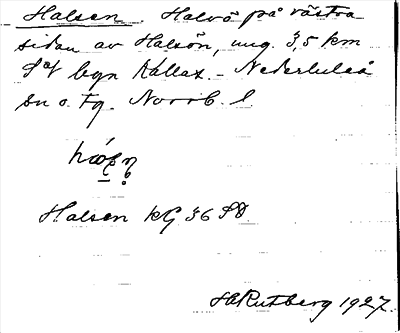 Halsen. Halvö på västra
sidan av Halsön, ung. 3,5 km
byn Kallax. – Nederluleå
sn o. Fg. Norrb. l
Halsen kG 36
HRutberg 1927.